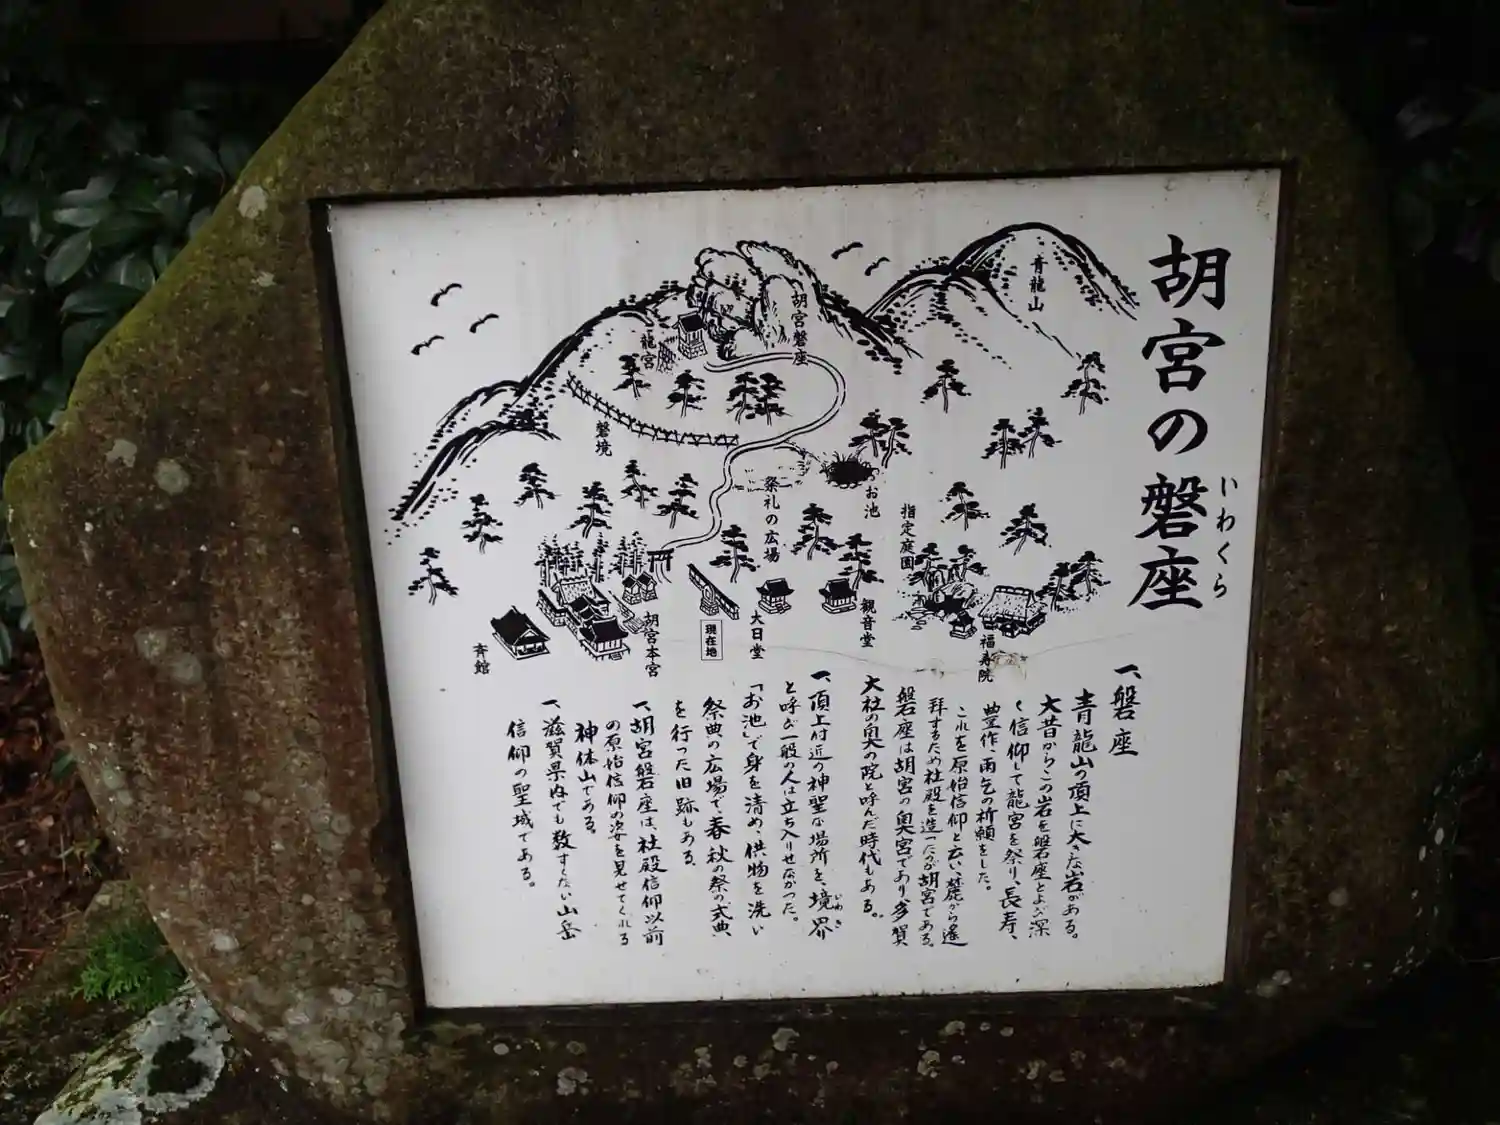 胡宮の磐座
いわくら
青龍山
胡宮磐座
龍宮
磐境
祭礼の広場
お池
指定庭園
観音堂
大日堂
現在地
胡宮本宮
斉館
福寿院
一、磐座
青龍山の頂上に大きな岩がある。
大昔からこの岩を磐座とよび深
く信仰して龍宮を祭り、長寿、
豊作、雨乞の祈願をした。
これを原始信仰と云い、麓から遙
拜するため社殿を造ったのが胡宮である。
磐座は胡宮の奥宮であり、多賀
大社の奥の院と呼んだ時代もある。
一、頂上付近の神聖な場所を、境界
いわさき
と呼び一般の人は立ち入りせなかった。
「お池」で身を清め、供物を洗い
祭典の広場で、春秋の祭の式典
を行った旧跡もある。
一、胡宮磐座は、社殿信仰以前
の原始信仰の姿を見せてくれる
神体山である。
一、滋賀県内でも数すくない山岳
信仰の聖域である。